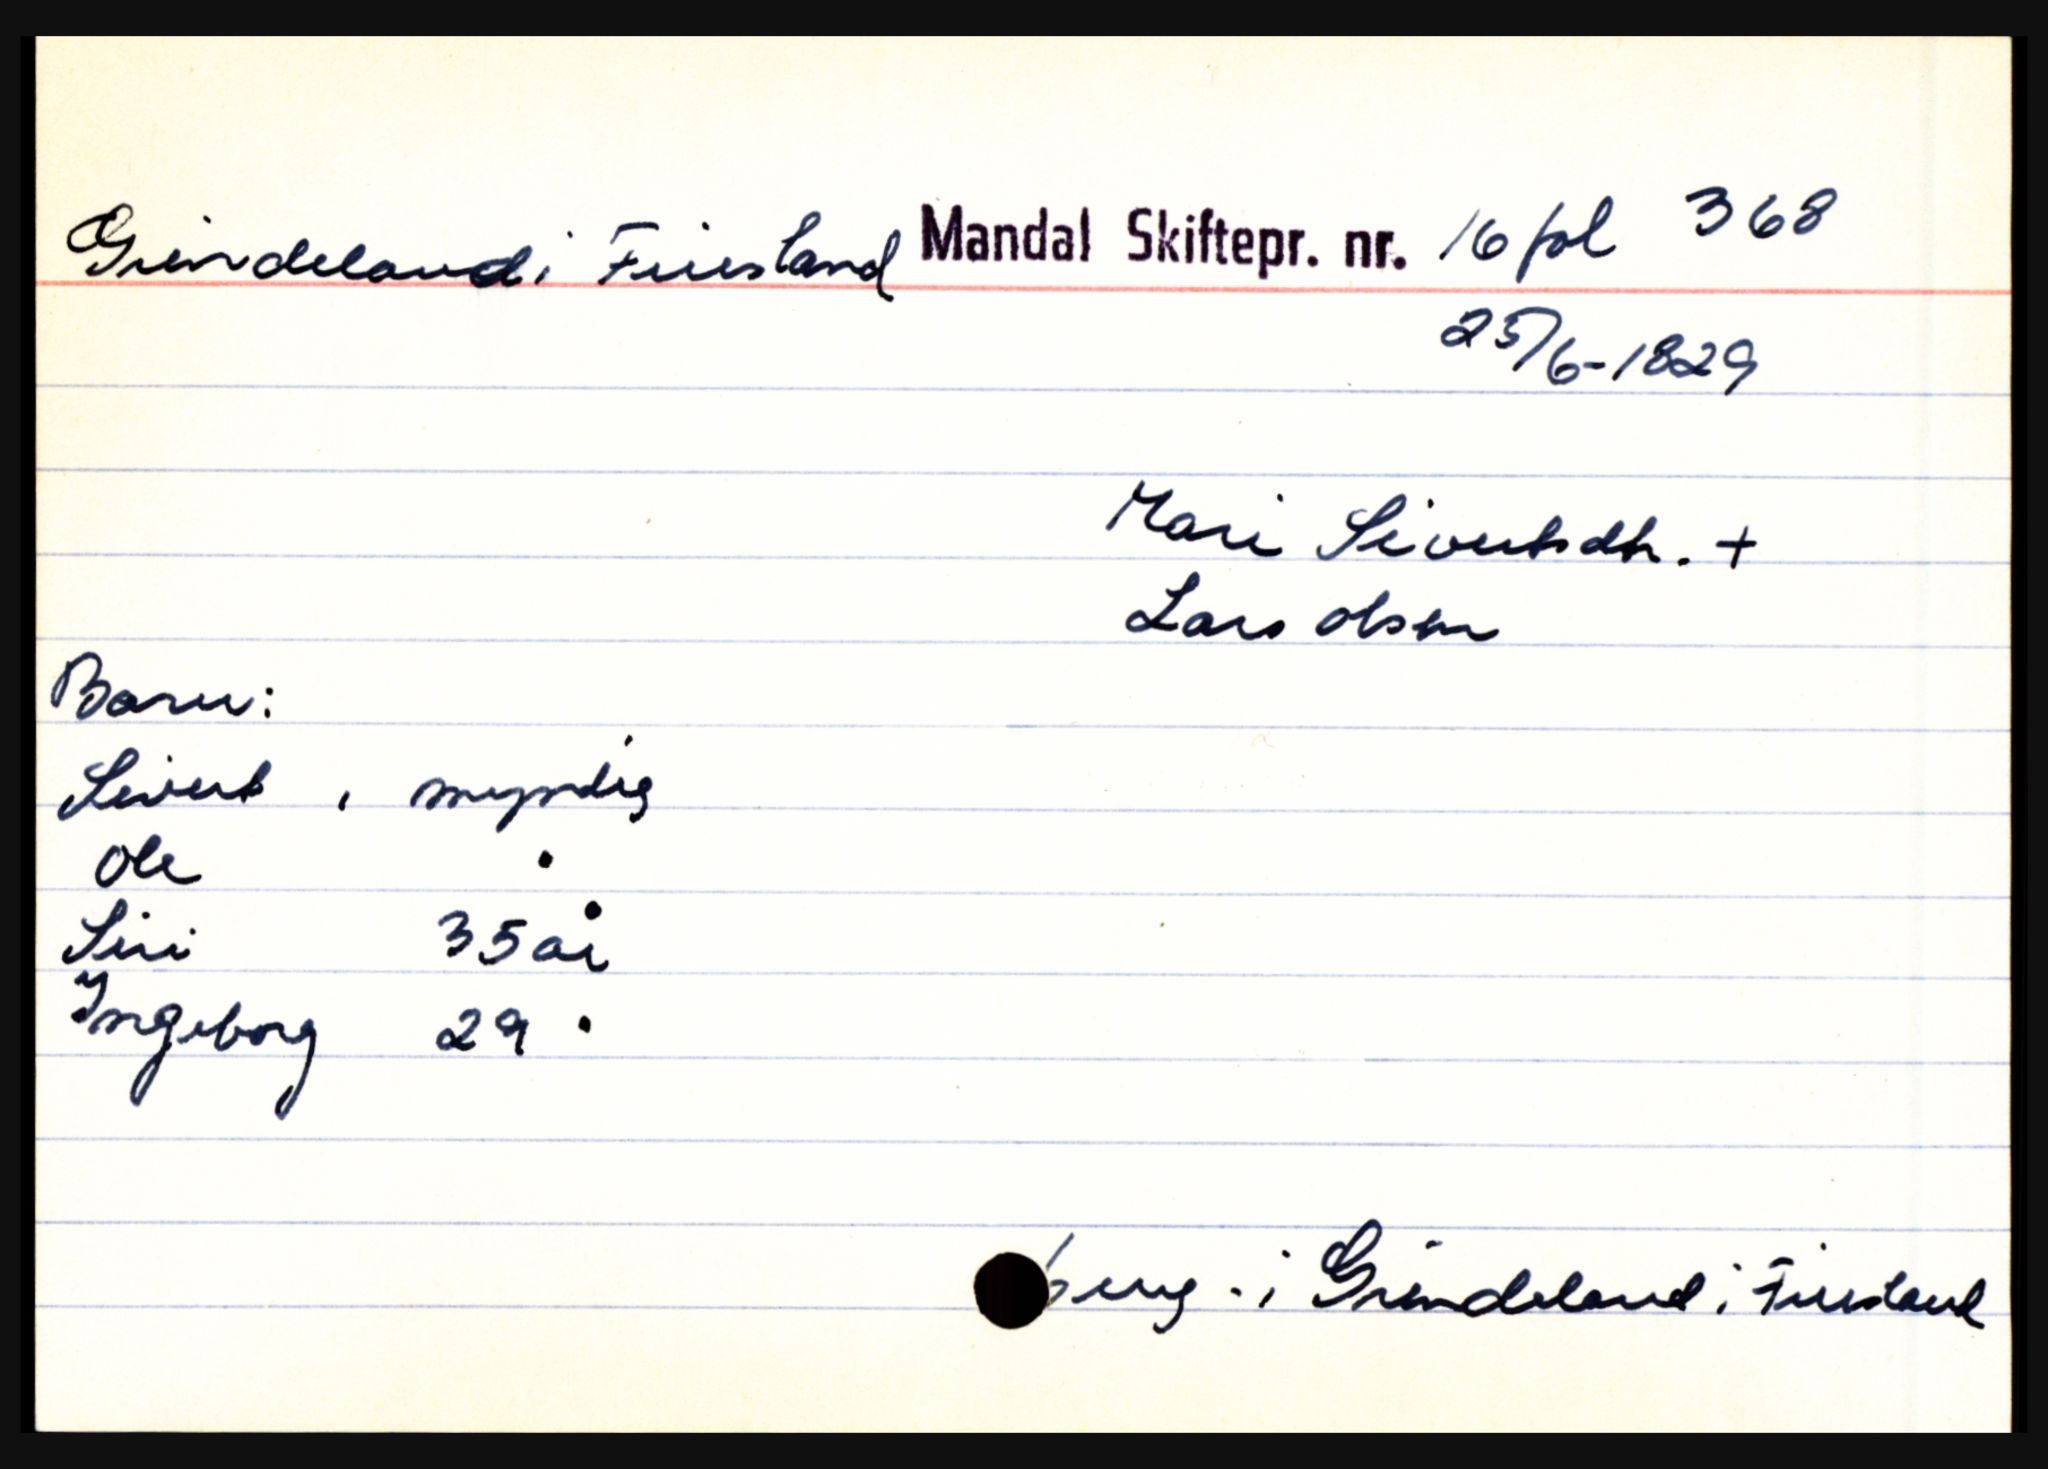 Grindeland i Finsland Mandal Skiftepr. nr. 16 fol 368
25/6-1829
Mari Sivertsdtr. +
Lars Olsen
Barn:
Sivert, myndig
Ole "
Siri 35 år
Ingeborg 29 "
i Grindeland i Finsland